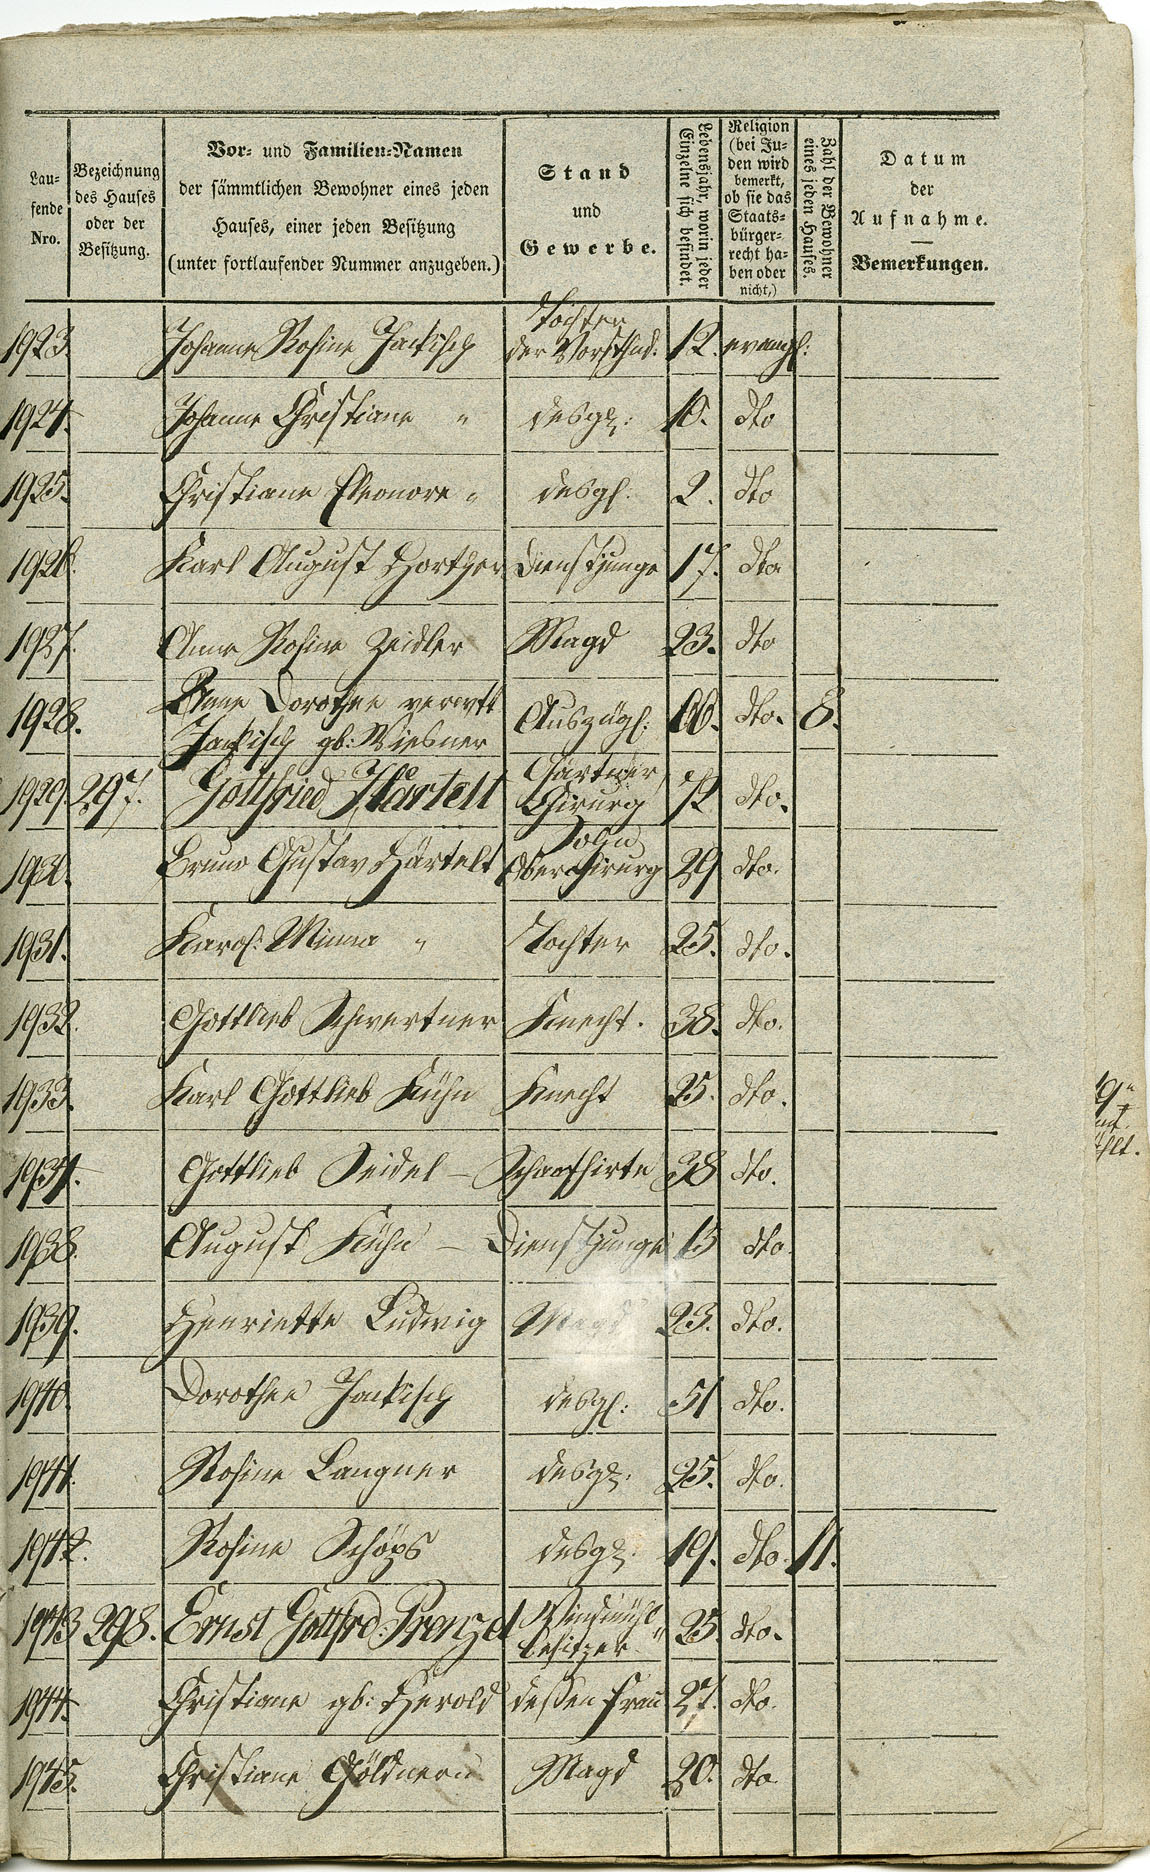 Lau-
fende
Nro.
Bezeichnung
des Hauses
oder der
Besitzung.
Vor- und Familien-Namen
der sämmtlichen Bewohner eines jeden
Hauses, einer jeden Besitzung
(unter fortlaufender Nummer anzugeben.)
Stand
und
Gewerbe.
Lebensjahr, worin jeder
Einzelne sich befindet.
Religion
(bei Ju-
den wird
bemerkt,
ob sie das
Staats-
bürger-
recht ha-
ben oder
nicht,)
Zahl der Bewohner
eines jeden Hauses.
Datum
der
Aufnahme.
Bemerkungen.
Tochter
1923. Johanne Rosine Jackisch der Vorsthnd: 12. evangl:
1924. Johanne Christiane " desgl: 10. dto
1925. Christiane Eleonore " desgl. 2. dto
1926. Karl August Dienstjunge 17. dto
1927. Anna Rosine Zeidler Magd 23. dto
1928. Anne Dorothee verwtt
Jackisch gb: Wiesner Auszügl: 66. dto. 8.
Gärtner,
1929. 297. Gottfried Härtelt Chirurg 72 dto.
Sohn
1930. Bruno Gustav Härtelt Oberchirurg 29 dto.
1931. Karol: Minna " Tochter 25. dto.
1932. Gottlieb Schwertner Knecht. 38. dto.
1933. Karl Gottlieb Kühn Knecht 25. dto.
1934. Gottlieb Seidel - Schaafhirte 38 dto.
1938. August Kühn - Dienstjunge 15 dto.
1939. Henriette Ludwig Magd 23. dto.
1940. Dorothee Jackisch desgl: 51 dto.
1941. Rosine Langner desgl: 25. dto.
1942. Rosine Schöps desgl: 19. dto. 11.
1943 298. Ernst Gottfrd: Prenzel Windmühl- 25. dto.
besitzer
1944. Christiane gb: Herold dessen Frau 27. dto.
1945. Christiane Göldnern Magd 20. dto